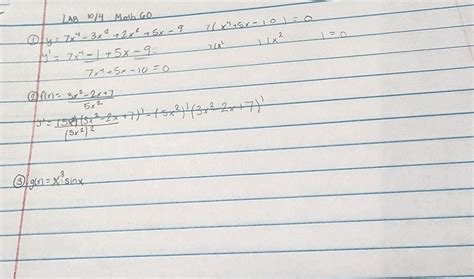 LAB 10/4 Math 60
① y = 7x⁴ - 3x² + 2x² + 5x - 9 7(x⁴+5x-10) = 0
y' = 7x⁴ - 1 + 5x - 9 7(x² )(x² ) = 0
7x⁴+5x-10 = 0
② f(x) = 3x² - 2x + 7 / 5x²
y' = (5x²)(3x² - 2x + 7)' - (5x²)'(3x² 2x + 7)' / (5x²)²
③ g(x) = x³ sinx